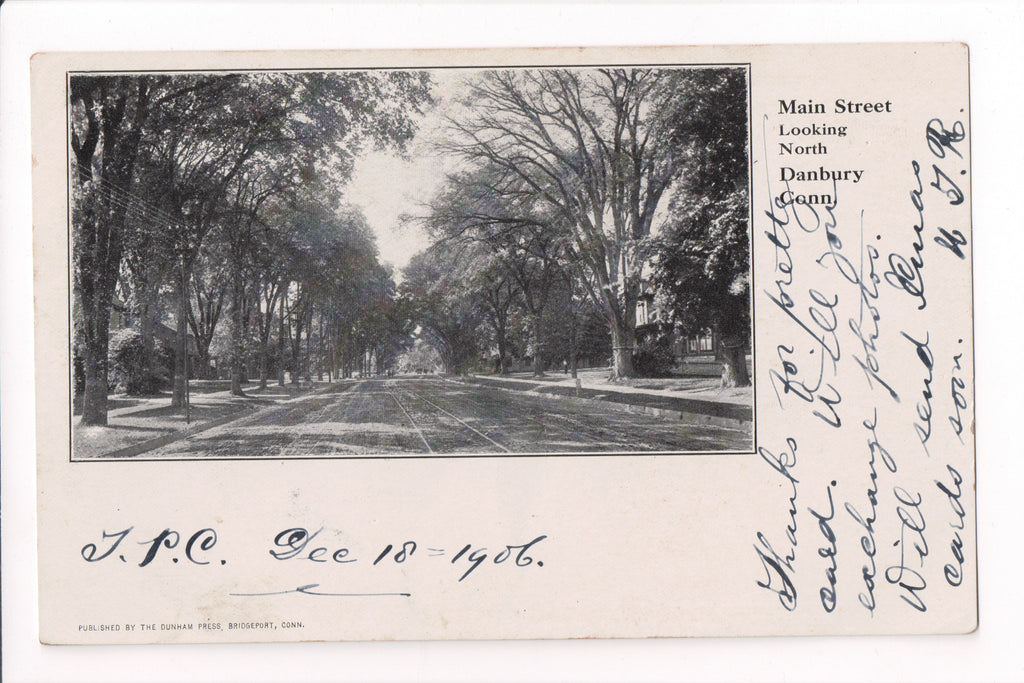 Main Street
Looking
North
Danbury
Conn.
Thanks for pretty
card. Will you
exchange photos.
Will send Xmas
cards soon.
J.P.C. Dec 18 = 1906.
PUBLISHED BY THE DUNHAM PRESS, BRIDGEPORT, CONN.